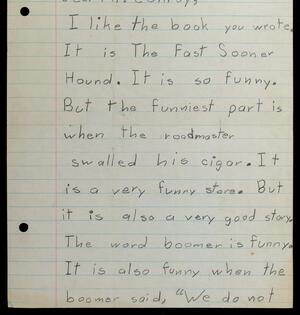 Dear Mr. Conroy,
I like the book you wrote.
It is The Fast Sooner
Hound. It is so funny.
But the funniest part is
when the roadmaster
swalled his cigar. It
is a very funny store. But
it is also a very good story.
The word boomer is funny.
It is also funny when the
boomer said, "We do not